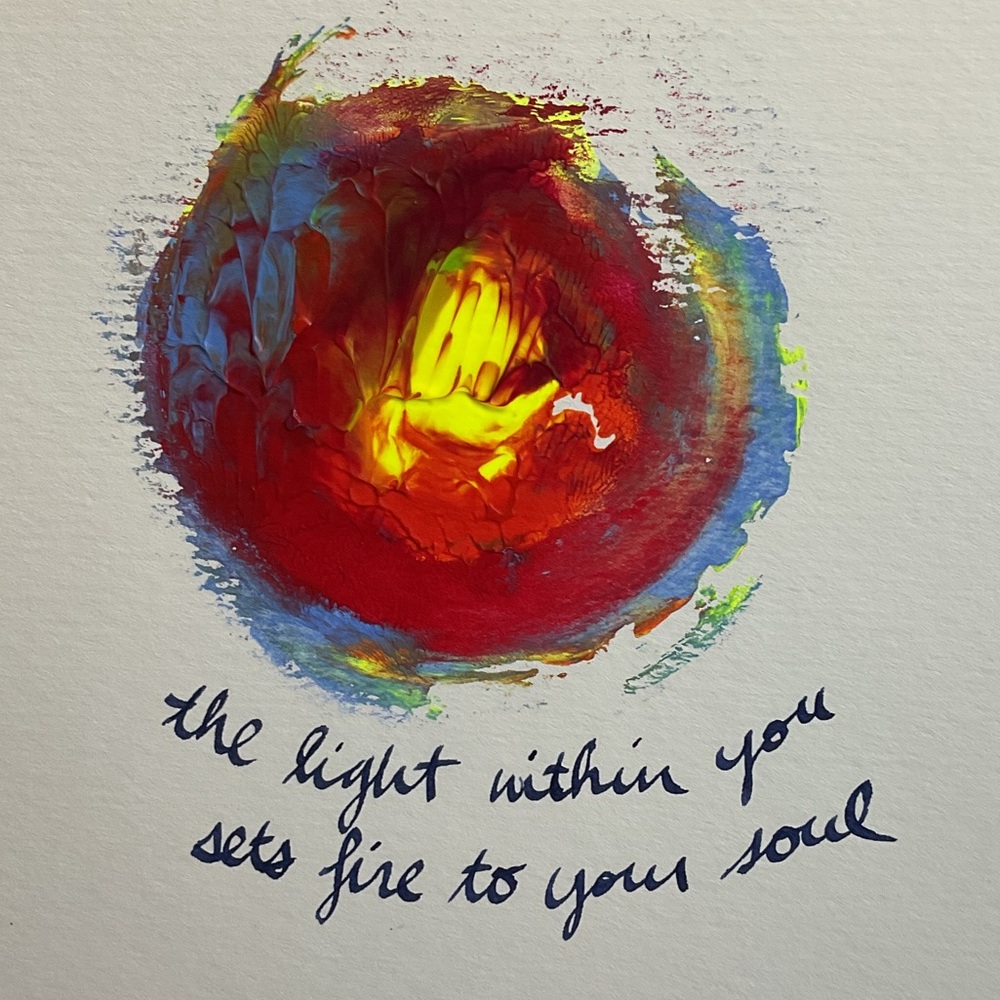 the light within you
sets fire to your soul